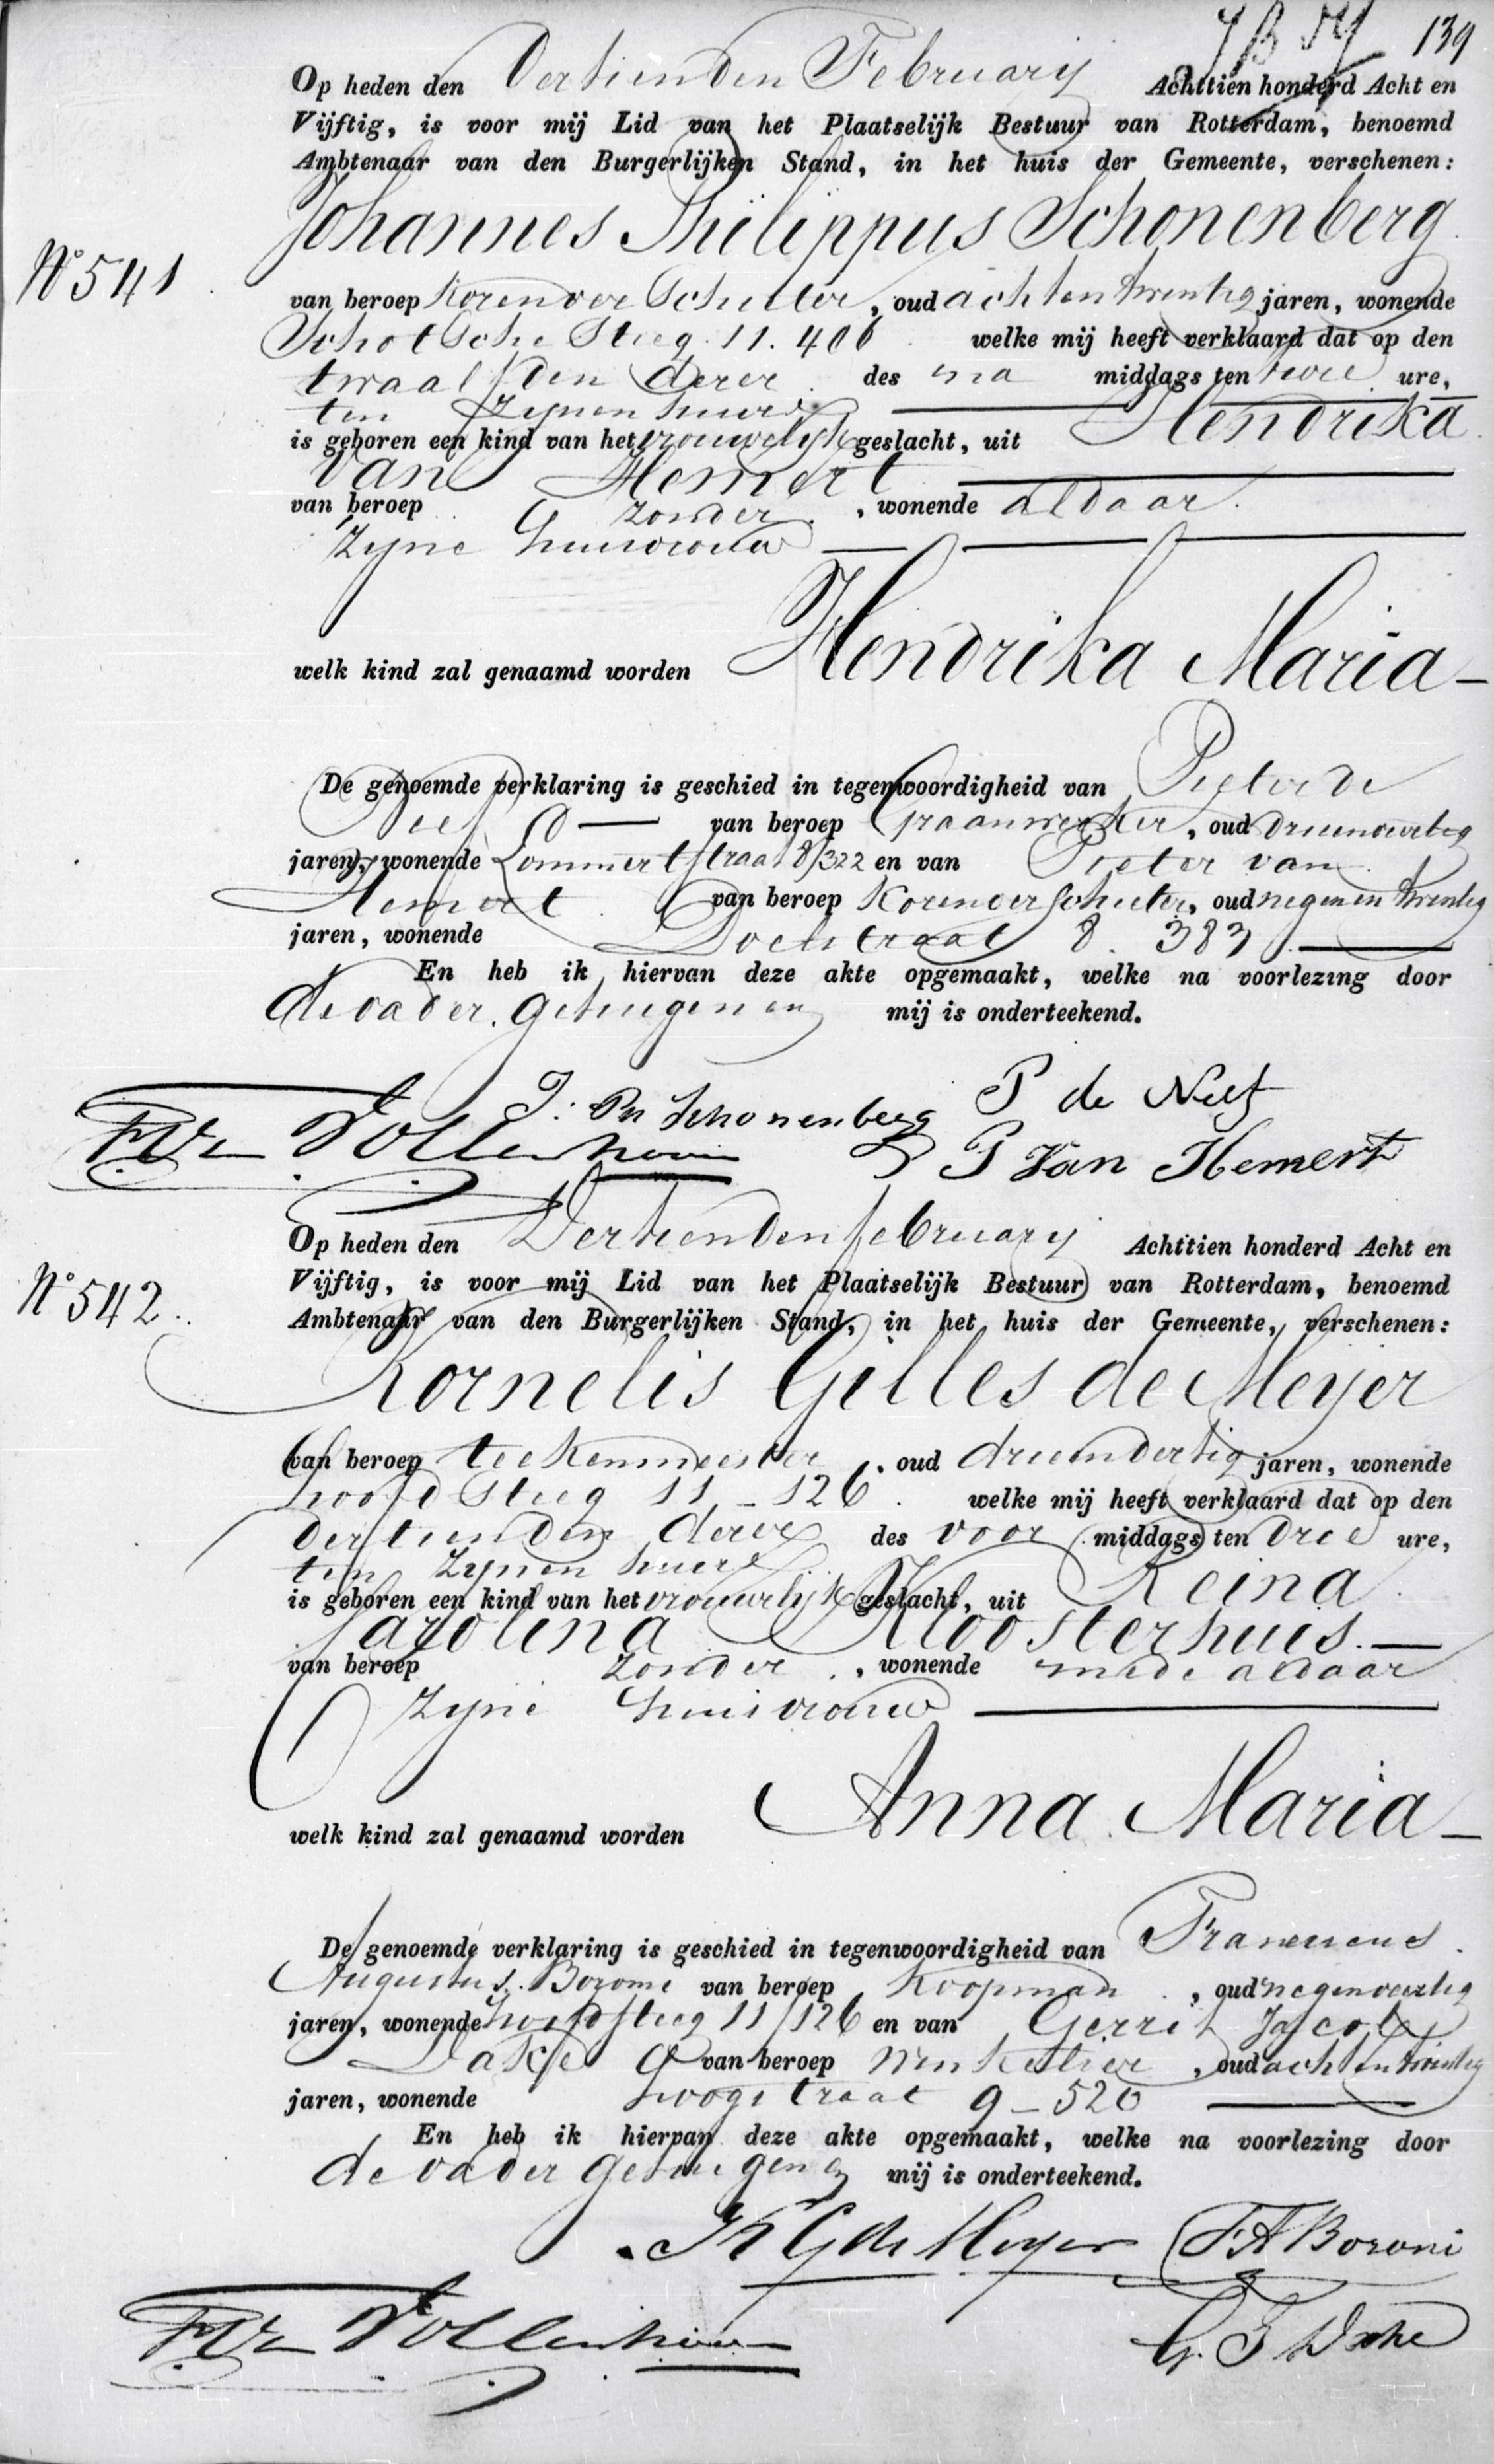 139
Op heden den Dertienden February Achttien honderd Acht en
Vijftig, is voor mij Lid van het Plaatselijk Bestuur van Rotterdam, benoemd
Ambtenaar van den Burgerlijken Stand, in het huis der Gemeente, verschenen:
Johannes Philippus Schonenberg
No 541
van beroep Korenverschieter, oud achtentwintig jaren, wonende
Schotsche Steeg 11. 406 welke mij heeft verklaard dat op den
twaalfden dezer des na middags ten twee ure,
ten zynen huize
is geboren een kind van het vrouwelijk geslacht, uit Hendrika
van Hemert
van beroep zonder, wonende aldaar
zyne huisvrouw
welk kind zal genaamd worden Hendrika Maria
De genoemde verklaring is geschied in tegenwoordigheid van Pieter de
Neef van beroep Graanwerker, oud drieenveertig
jaren, wonende Lommertstraat 8/322 en van Pieter van
Hemert van beroep Korenverschieter, oud negenentwintig
jaren, wonende 8. 383
En heb ik hiervan deze akte opgemaakt, welke na voorlezing door
de vader, getuigen en mij is onderteekend.
J: Ph Schonenberg P de Neef
F van Vollenhoven P Van Hemert
Op heden den Dertienden february Achttien honderd Acht en
No 542.
Vijftig, is voor mij Lid van het Plaatselijk Bestuur van Rotterdam, benoemd
Ambtenaar van den Burgerlijken Stand, in het huis der Gemeente, verschenen:
Kornelis Gilles de Meijer
van beroep teekenmeester, oud drieendertig jaren, wonende
hoofdsteeg 11 - 126 welke mij heeft verklaard dat op den
dertienden dezer des voor middags ten drie ure,
ten zynen huize
is geboren een kind van het vrouwelijk geslacht, uit Reina
Carolina Kloosterhuis.
van beroep zonder, wonende mede aldaar
zyne huisvrouw
welk kind zal genaamd worden Anna Maria
De genoemde verklaring is geschied in tegenwoordigheid van Franciscus
Augustus Boromi van beroep Koopman, oud negenveertig
jaren, wonende hoofdsteeg 11/126 en van Gerrit Jacob
van beroep Winkelier, oud achtentwintig
jaren, wonende hoogstraat 9 - 526
En heb ik hiervan deze akte opgemaakt, welke na voorlezing door
de vader getuigen en mij is onderteekend.
K G de Meyer F A Boromi
F van Vollenhoven G. J